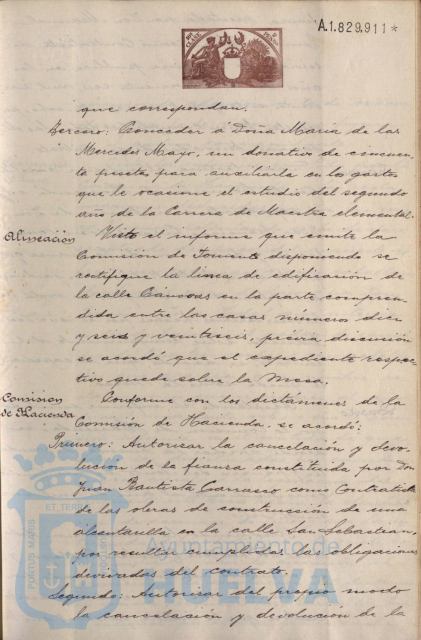 A.1.829.911*
que correspondan.
Tercero: Conceder á Doña María de las
Mercedes Mayo, un donativo de cincuen-
ta pesetas para auxiliarla en los gastos
que le ocasione el estudio del segundo
año de la Carrera de Maestra elemental.
Alineación
Visto el informe que emite la
Comisión de Fomento disponiendo se
rectifique la linea de edificación de
la calle Cánovas en la parte compren-
dida entre las casas números diez
y seis y veintiseis, prévia discusión
se acordó que el expediente respec-
tivo quede sobre la Mesa.
Comision
de Hacienda
Conforme con los dictámenes de la
Comisión de Hacienda, se acordó:
Primero: Autorizar la cancelación y devo-
lución de la fianza constituida por Don
Juan Bautista Carrasco como Contratista
de las obras de construcción de una
alcantarilla en la calle San Sebastian,
por resultar cumplidas las obligaciones
derivadas del contrato.
Segundo: Autorizar del propio modo
la cancelación y devolución de la
PORTUS MARIS
ET TERRAE
Ayuntamiento de
HUELVA